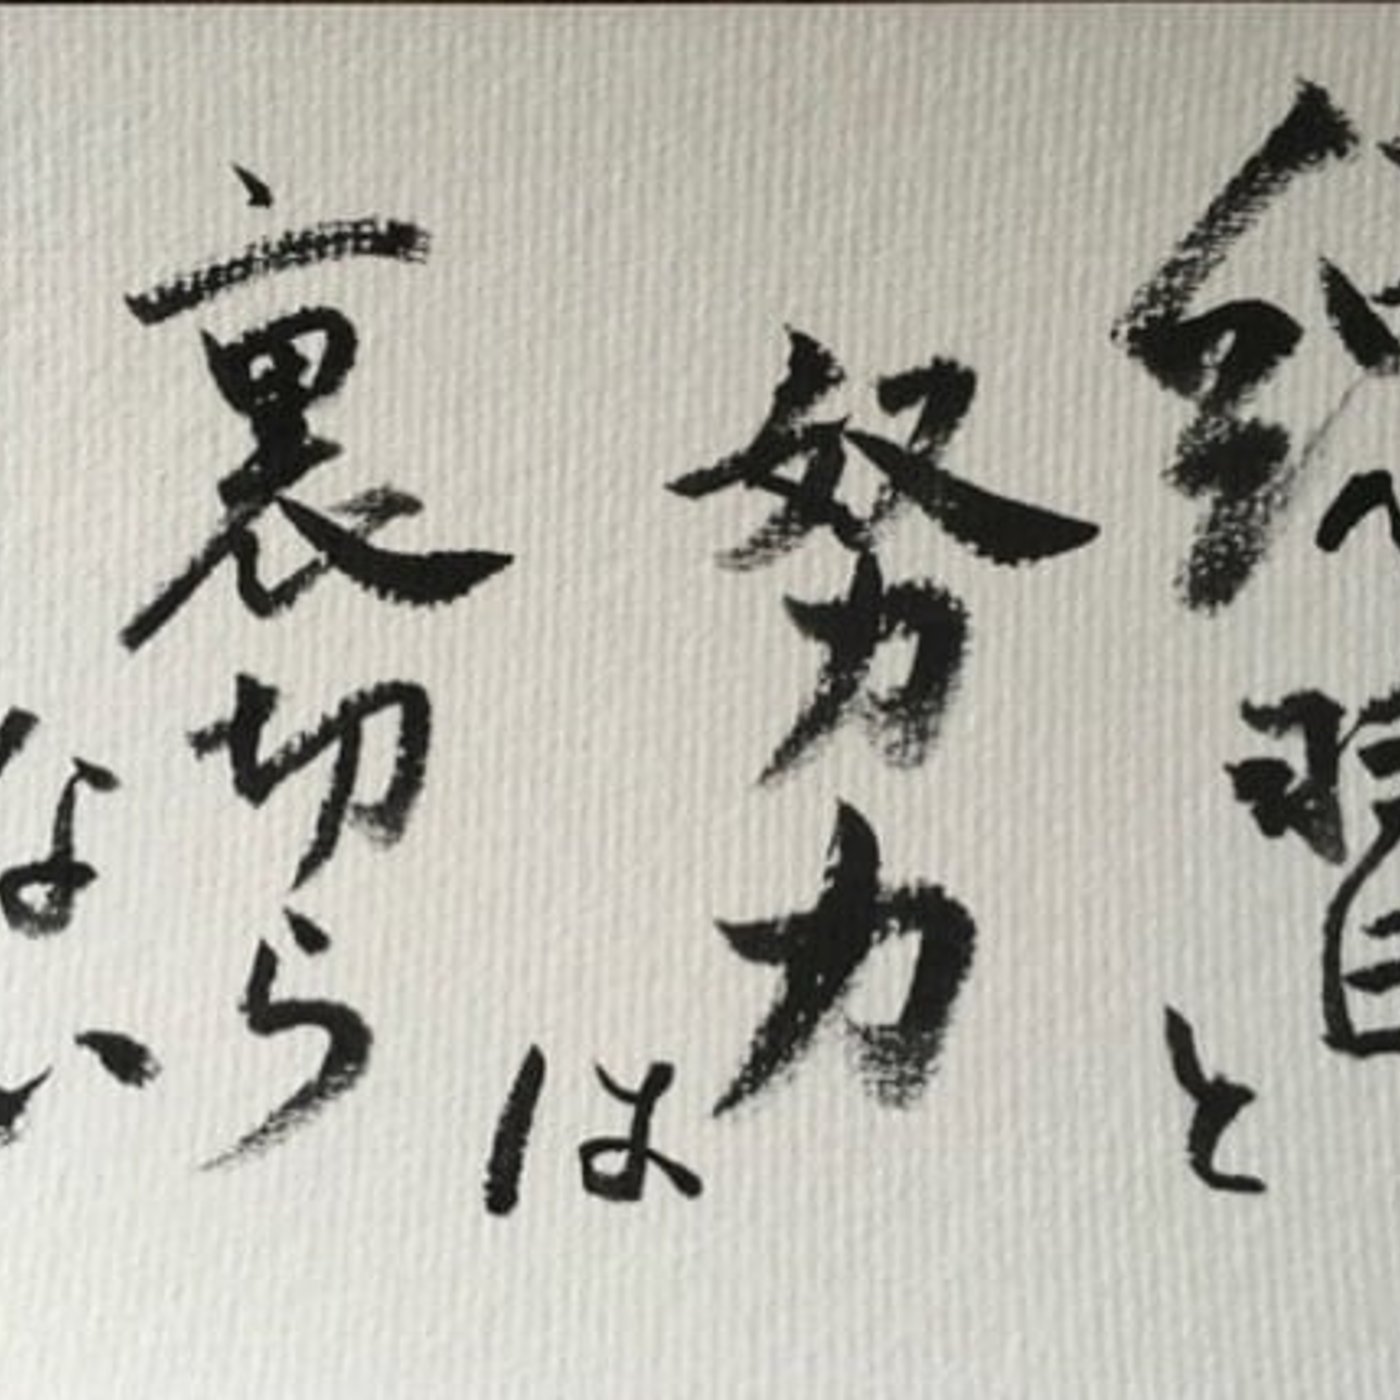 練習と
努力は
裏切ら
ない